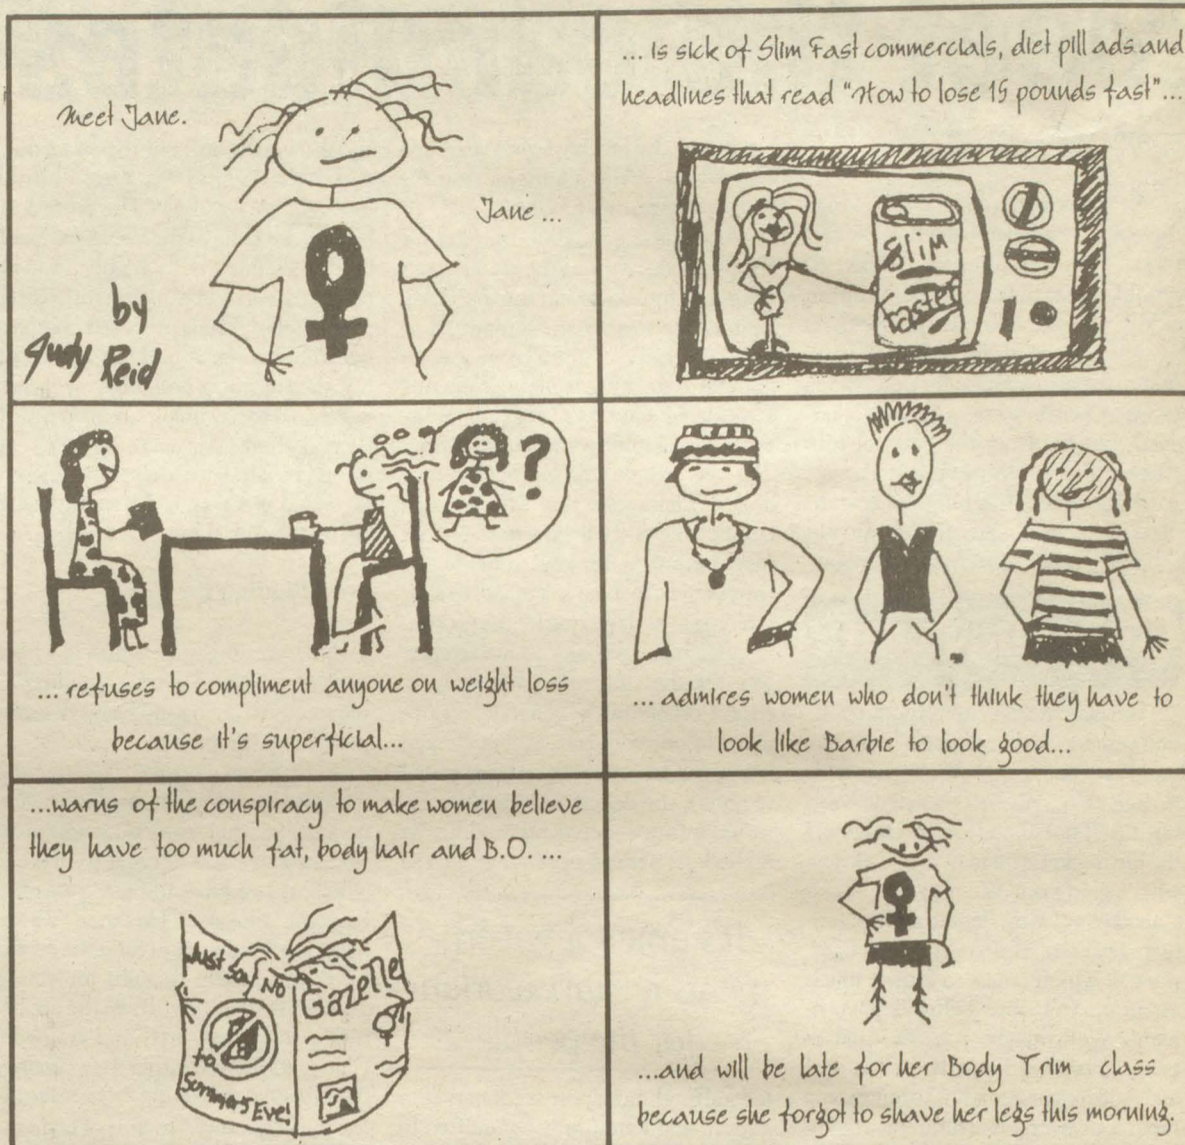 Meet Jane.
Jane ...
by
Judy Reid
... is sick of Slim Fast commercials, diet pill ads and
headlines that read "How to lose 15 pounds fast"...
Slim
Faster
?
... refuses to compliment anyone on weight loss
because it's superficial...
... admires women who don't think they have to
look like Barbie to look good...
...warns of the conspiracy to make women believe
they have too much fat, body hair and B.O. ...
Just say No
to
Summer's Eve!
Gazelle
...and will be late for her Body Trim class
because she forgot to shave her legs this morning.